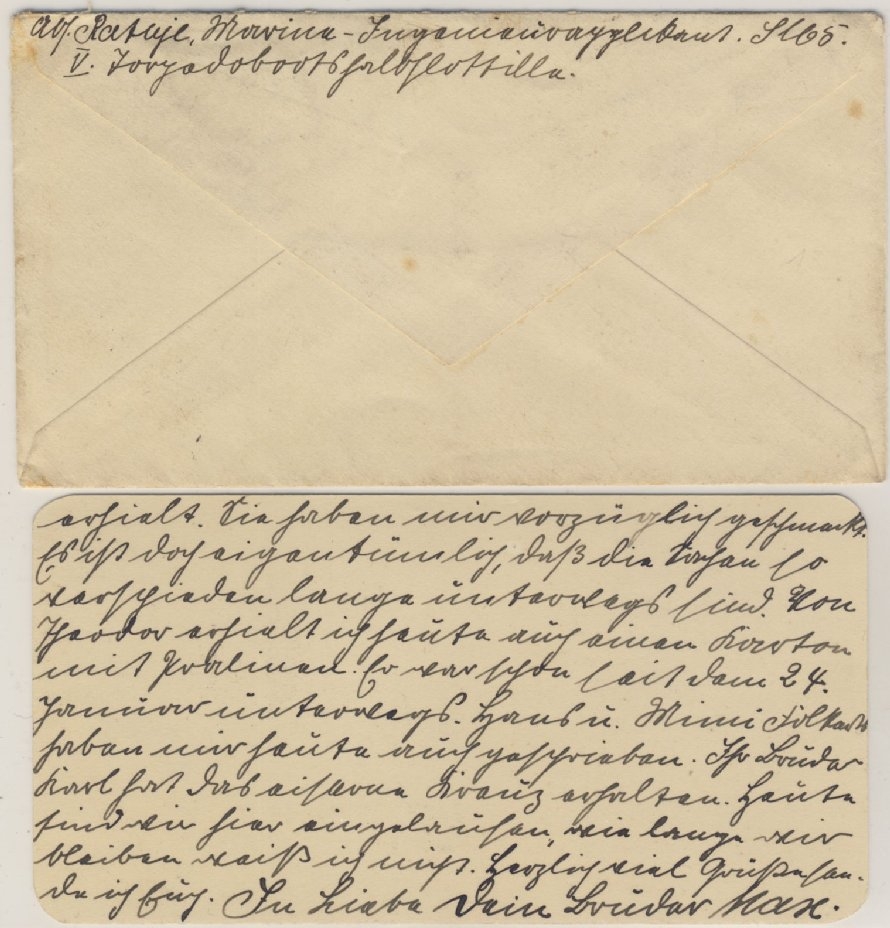 Abs. Rataje, Marine-Ingenieurapplikant. S165.
V. Torpedobootshalbflottille.
erhielt. Sie haben mir vorzüglich geschmeckt.
Es ist doch eigentümlich, daß die Sachen so
verschieden lange unterwegs sind. Von
Theodor erhielt ich heute auch einen Karton
mit Pralinen. Er war schon seit dem 24.
Januar unterwegs. Hans u. Mimi
haben mir heute auch geschrieben. Ihr Bruder
Karl hat das eiserne Kreuz erhalten. Heute
sind wir hier eingelaufen, wie lange wir
bleiben weiß ich nicht. Herzlich viel Grüße sen-
de ich Euch. In Liebe Dein Bruder Max.